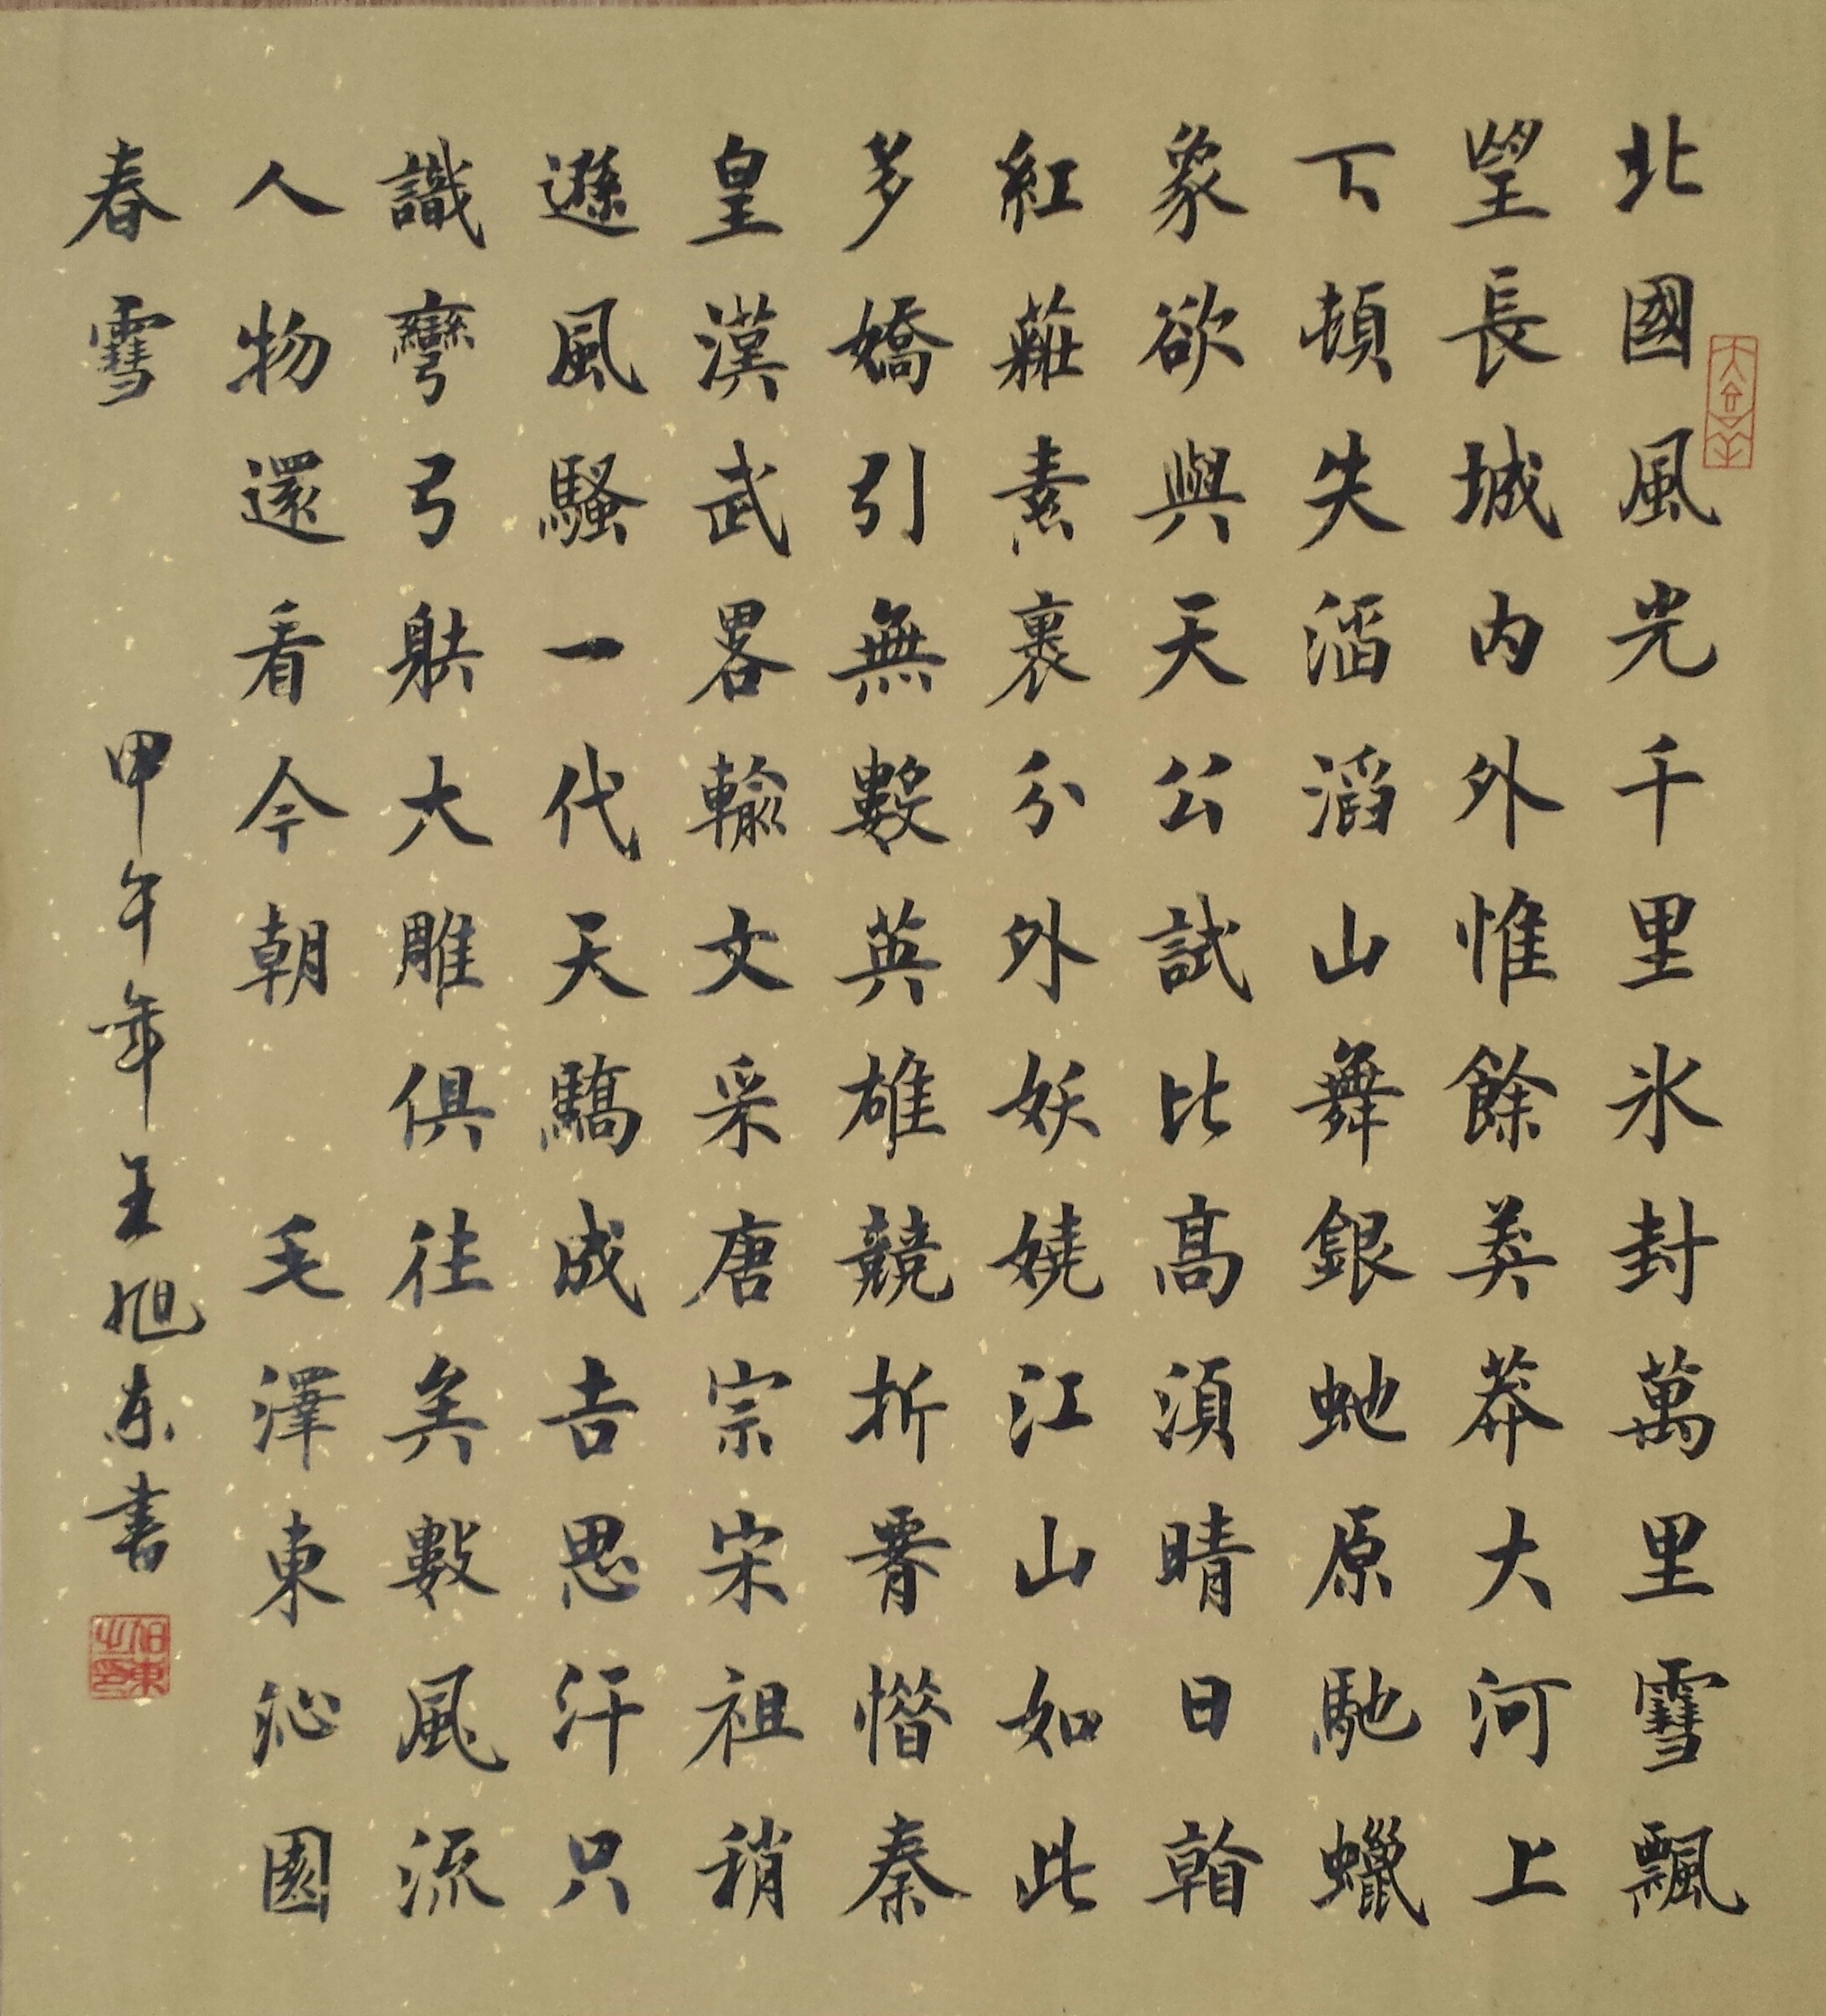 北國風光千里氷封萬里雪飄
望長城内外惟餘莽莽大河上
下頓失滔滔山舞銀虵原馳蠟
象欲與天公試比高須晴日看
紅莊素裹分外妖嬈江山如此
多嬌引無數英雄競折脊惜秦
皇漢武畧輸文采唐宗宋祖稍
遜風騷一代天驕成吉思汗只
識彎弓躲大雕俱往矣數風流
人物還看今朝 毛澤東沁園
春雪
甲午年王旭东書
旭東之印